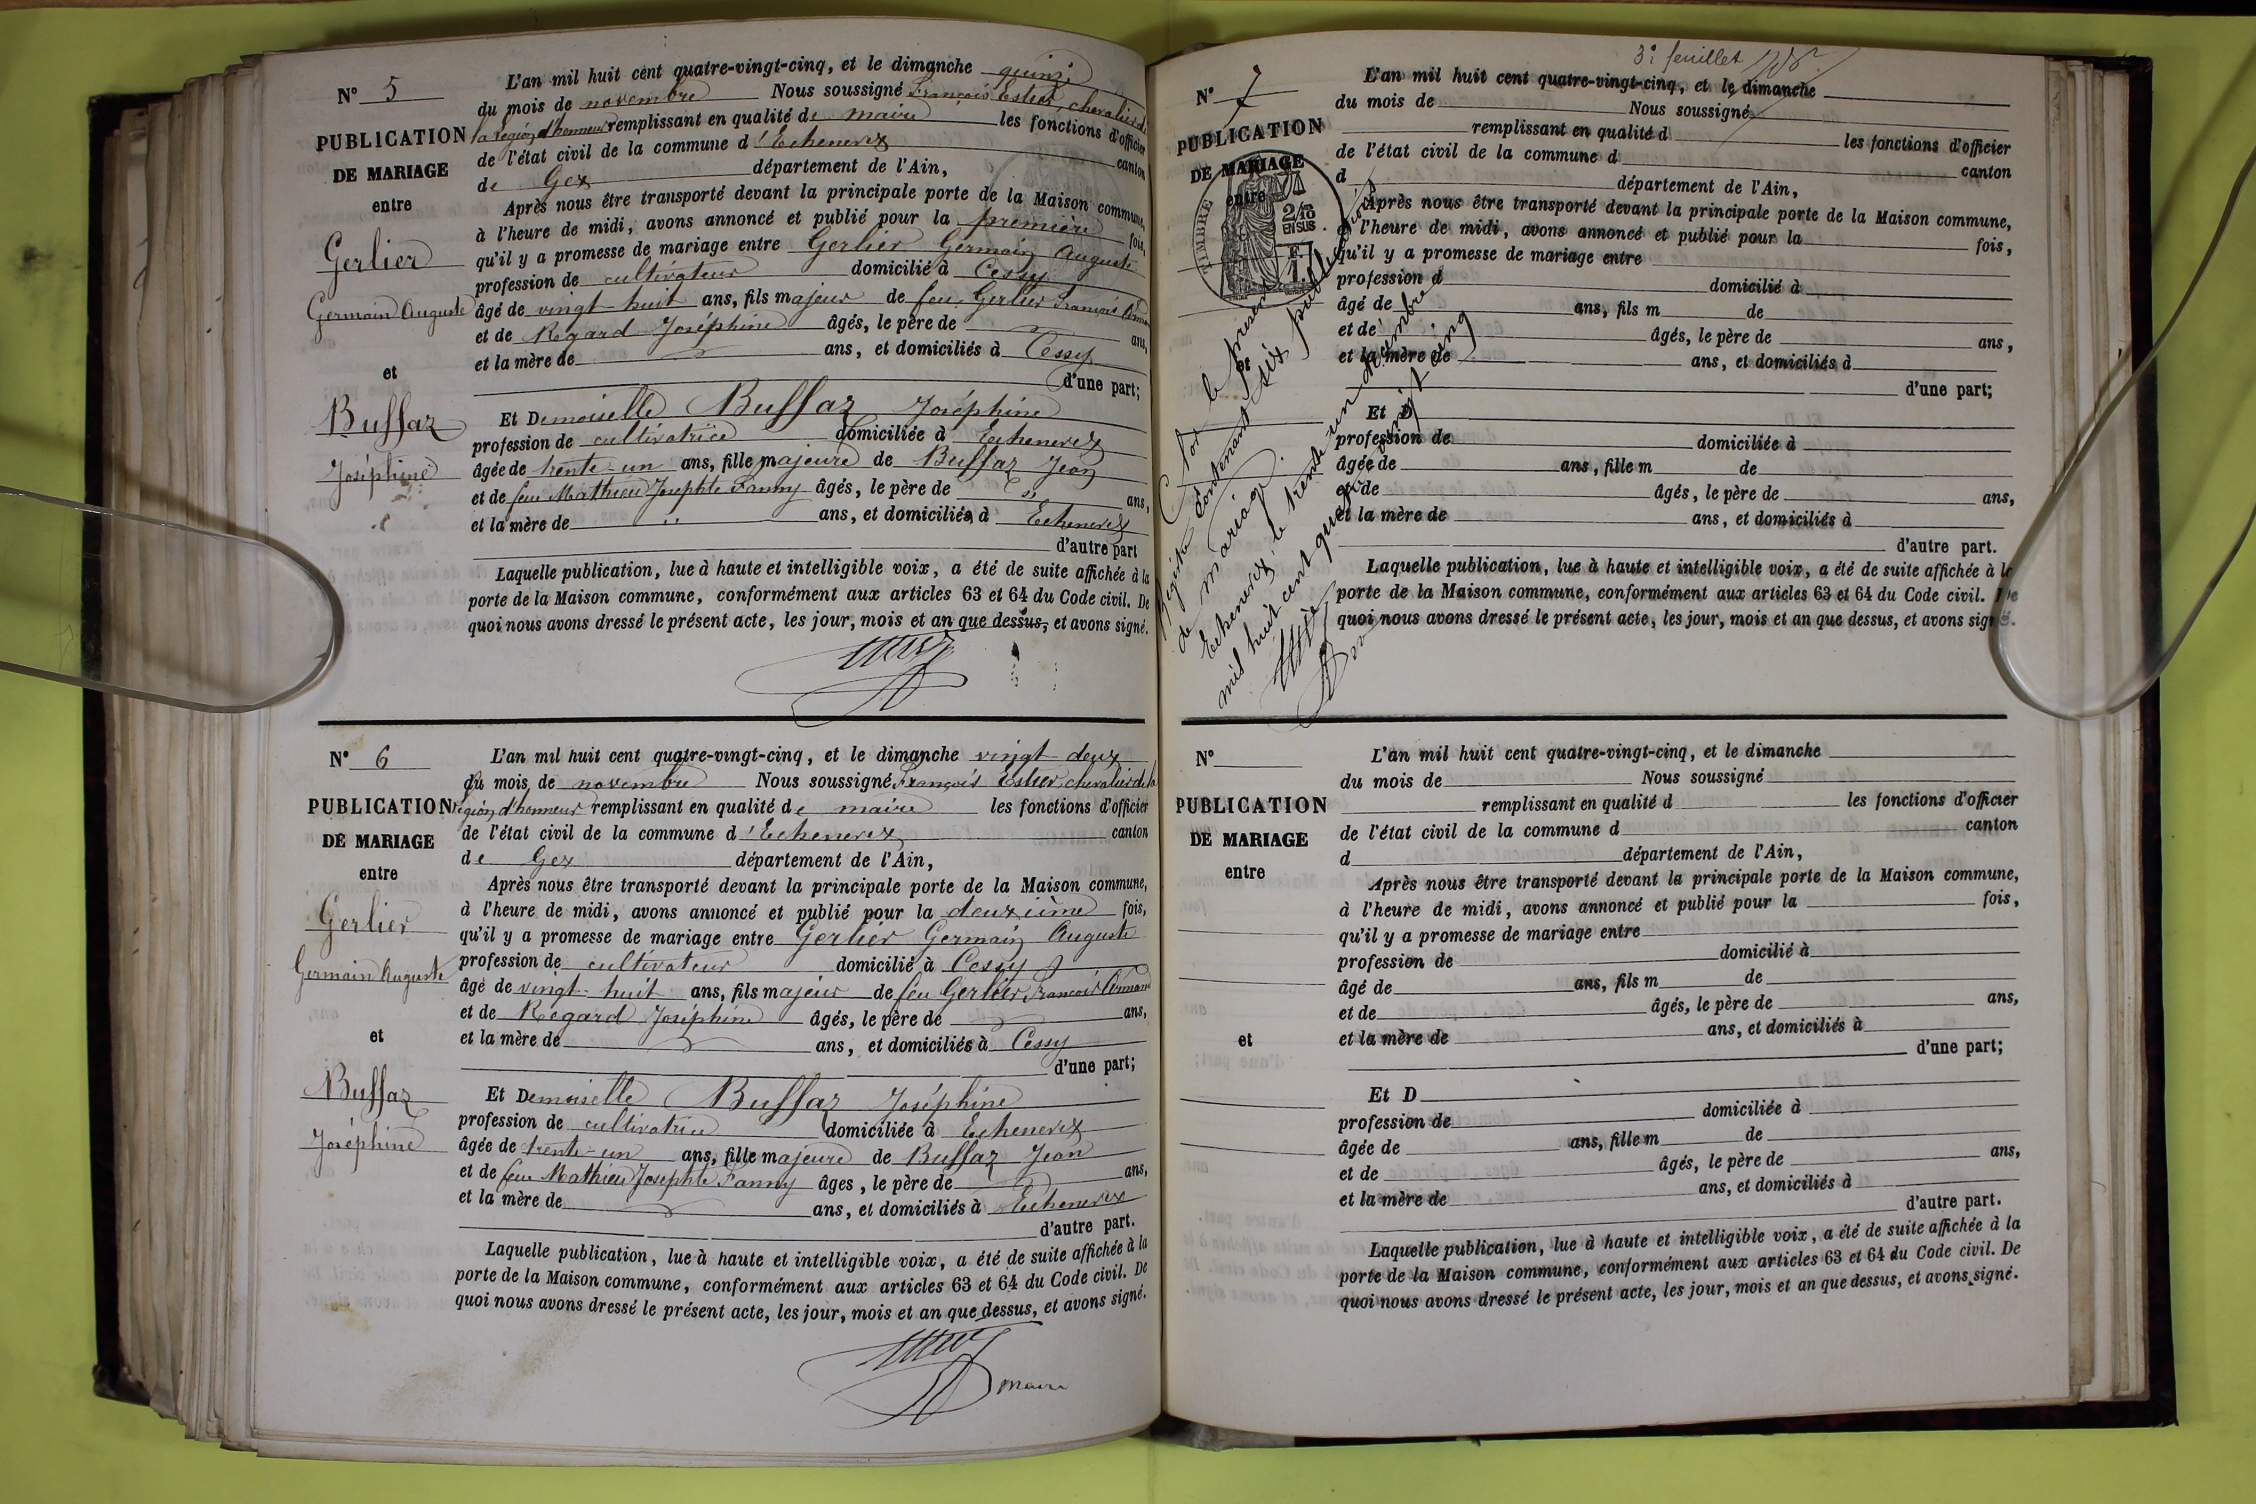 N° 5
PUBLICATION
DE MARIAGE
entre
Gerlier
Germain Auguste
et
Buffaz
Joséphine
L'an mil huit cent quatre-vingt-cinq, et le dimanche quinze
du mois de novembre Nous soussigné François Estier, chevalier de
la légion d'honneur remplissant en qualité de maire les fonctions d'officier
de l'état civil de la commune d'Echenevex canton
de Gex département de l'Ain,
Après nous être transporté devant la principale porte de la Maison commune,
à l'heure de midi, avons annoncé et publié pour la première fois,
qu'il y a promesse de mariage entre Gerlier Germain Auguste
profession de cultivateur domicilié à Cessy
âgé de vingt-huit ans, fils majeur de feu Gerlier François Armand
et de Régard Joséphine âgés, le père de ans,
et la mère de ans, et domiciliés à Cessy
d'une part;
Et Demoiselle Buffaz Joséphine
profession de cultivatrice domiciliée à Echenevex
âgée de trente-un ans, fille majeure de Buffaz Jean
et de feue Mathieu Josephte Fanny âgés, le père de " ans,
et la mère de " ans, et domiciliés à Echenevex
d'autre part
Laquelle publication, lue à haute et intelligible voix, a été de suite affichée à la
porte de la Maison commune, conformément aux articles 63 et 64 du Code civil. De
quoi nous avons dressé le présent acte, les jour, mois et an que dessus, et avons signé.
N° 6
PUBLICATION
DE MARIAGE
entre
Gerlier
Germain Auguste
et
Buffaz
Joséphine
L'an mil huit cent quatre-vingt-cinq, et le dimanche vingt-deux
du mois de novembre Nous soussigné François Estier, chevalier de la
légion d'honneur remplissant en qualité de maire les fonctions d'officier
de l'état civil de la commune d'Echenevex canton
de Gex département de l'Ain,
Après nous être transporté devant la principale porte de la Maison commune,
à l'heure de midi, avons annoncé et publié pour la deuxième fois,
qu'il y a promesse de mariage entre Gerlier Germain Auguste
profession de cultivateur domicilié à Cessy
âgé de vingt-huit ans, fils majeur de feu Gerlier François Armand
et de Régard Joséphine âgés, le père de ans,
et la mère de ans, et domiciliés à Cessy
d'une part;
Et Demoiselle Buffaz Joséphine
profession de cultivatrice domiciliée à Echenevex
âgée de trente-un ans, fille majeure de Buffaz Jean
et de feue Mathieu Josephte Fanny âges, le père de ans,
et la mère de ans, et domiciliés à Echenevex
d'autre part.
Laquelle publication, lue à haute et intelligible voix, a été de suite affichée à la
porte de la Maison commune, conformément aux articles 63 et 64 du Code civil. De
quoi nous avons dressé le présent acte, les jour, mois et an que dessus, et avons signé.
maire
3e feuillet
N° 7
PUBLICATION
DE MARIAGE
entre
TIMBRE
2/10
EN SUS
F.
1
et
L'an mil huit cent quatre-vingt-cinq, et le dimanche
du mois de Nous soussigné
remplissant en qualité d les fonctions d'officier
de l'état civil de la commune d canton
d département de l'Ain,
Après nous être transporté devant la principale porte de la Maison commune,
à l'heure de midi, avons annoncé et publié pour la fois,
qu'il y a promesse de mariage entre
profession d domicilié à
âgé de ans, fils m de
et de âgés, le père de ans,
et la mère de ans, et domiciliés à
d'une part;
Et D
profession de domiciliée à
âgée de ans, fille m de
et de âgés, le père de ans,
et la mère de ans, et domiciliés à
d'autre part.
Laquelle publication, lue à haute et intelligible voix, a été de suite affichée à la
porte de la Maison commune, conformément aux articles 63 et 64 du Code civil. De
quoi nous avons dressé le présent acte, les jour, mois et an que dessus, et avons signé.
Clos le présent
registre contenant six publications
de mariage.
Echenevex le trente-un décembre
mil huit cent quatre vingt cinq
N°
PUBLICATION
DE MARIAGE
entre
et
L'an mil huit cent quatre-vingt-cinq, et le dimanche
du mois de Nous soussigné
remplissant en qualité d les fonctions d'officier
de l'état civil de la commune d canton
d département de l'Ain,
Après nous être transporté devant la principale porte de la Maison commune,
à l'heure de midi, avons annoncé et publié pour la fois,
qu'il y a promesse de mariage entre
profession de domicilié à
âgé de ans, fils m de
et de âgés, le père de ans,
et la mère de ans, et domiciliés à
d'une part;
Et D
profession de domiciliée à
âgée de ans, fille m de
et de âgés, le père de ans,
et la mère de ans, et domiciliés à
d'autre part.
Laquelle publication, lue à haute et intelligible voix, a été de suite affichée à la
porte de la Maison commune, conformément aux articles 63 et 64 du Code civil. De
quoi nous avons dressé le présent acte, les jour, mois et an que dessus, et avons signé.